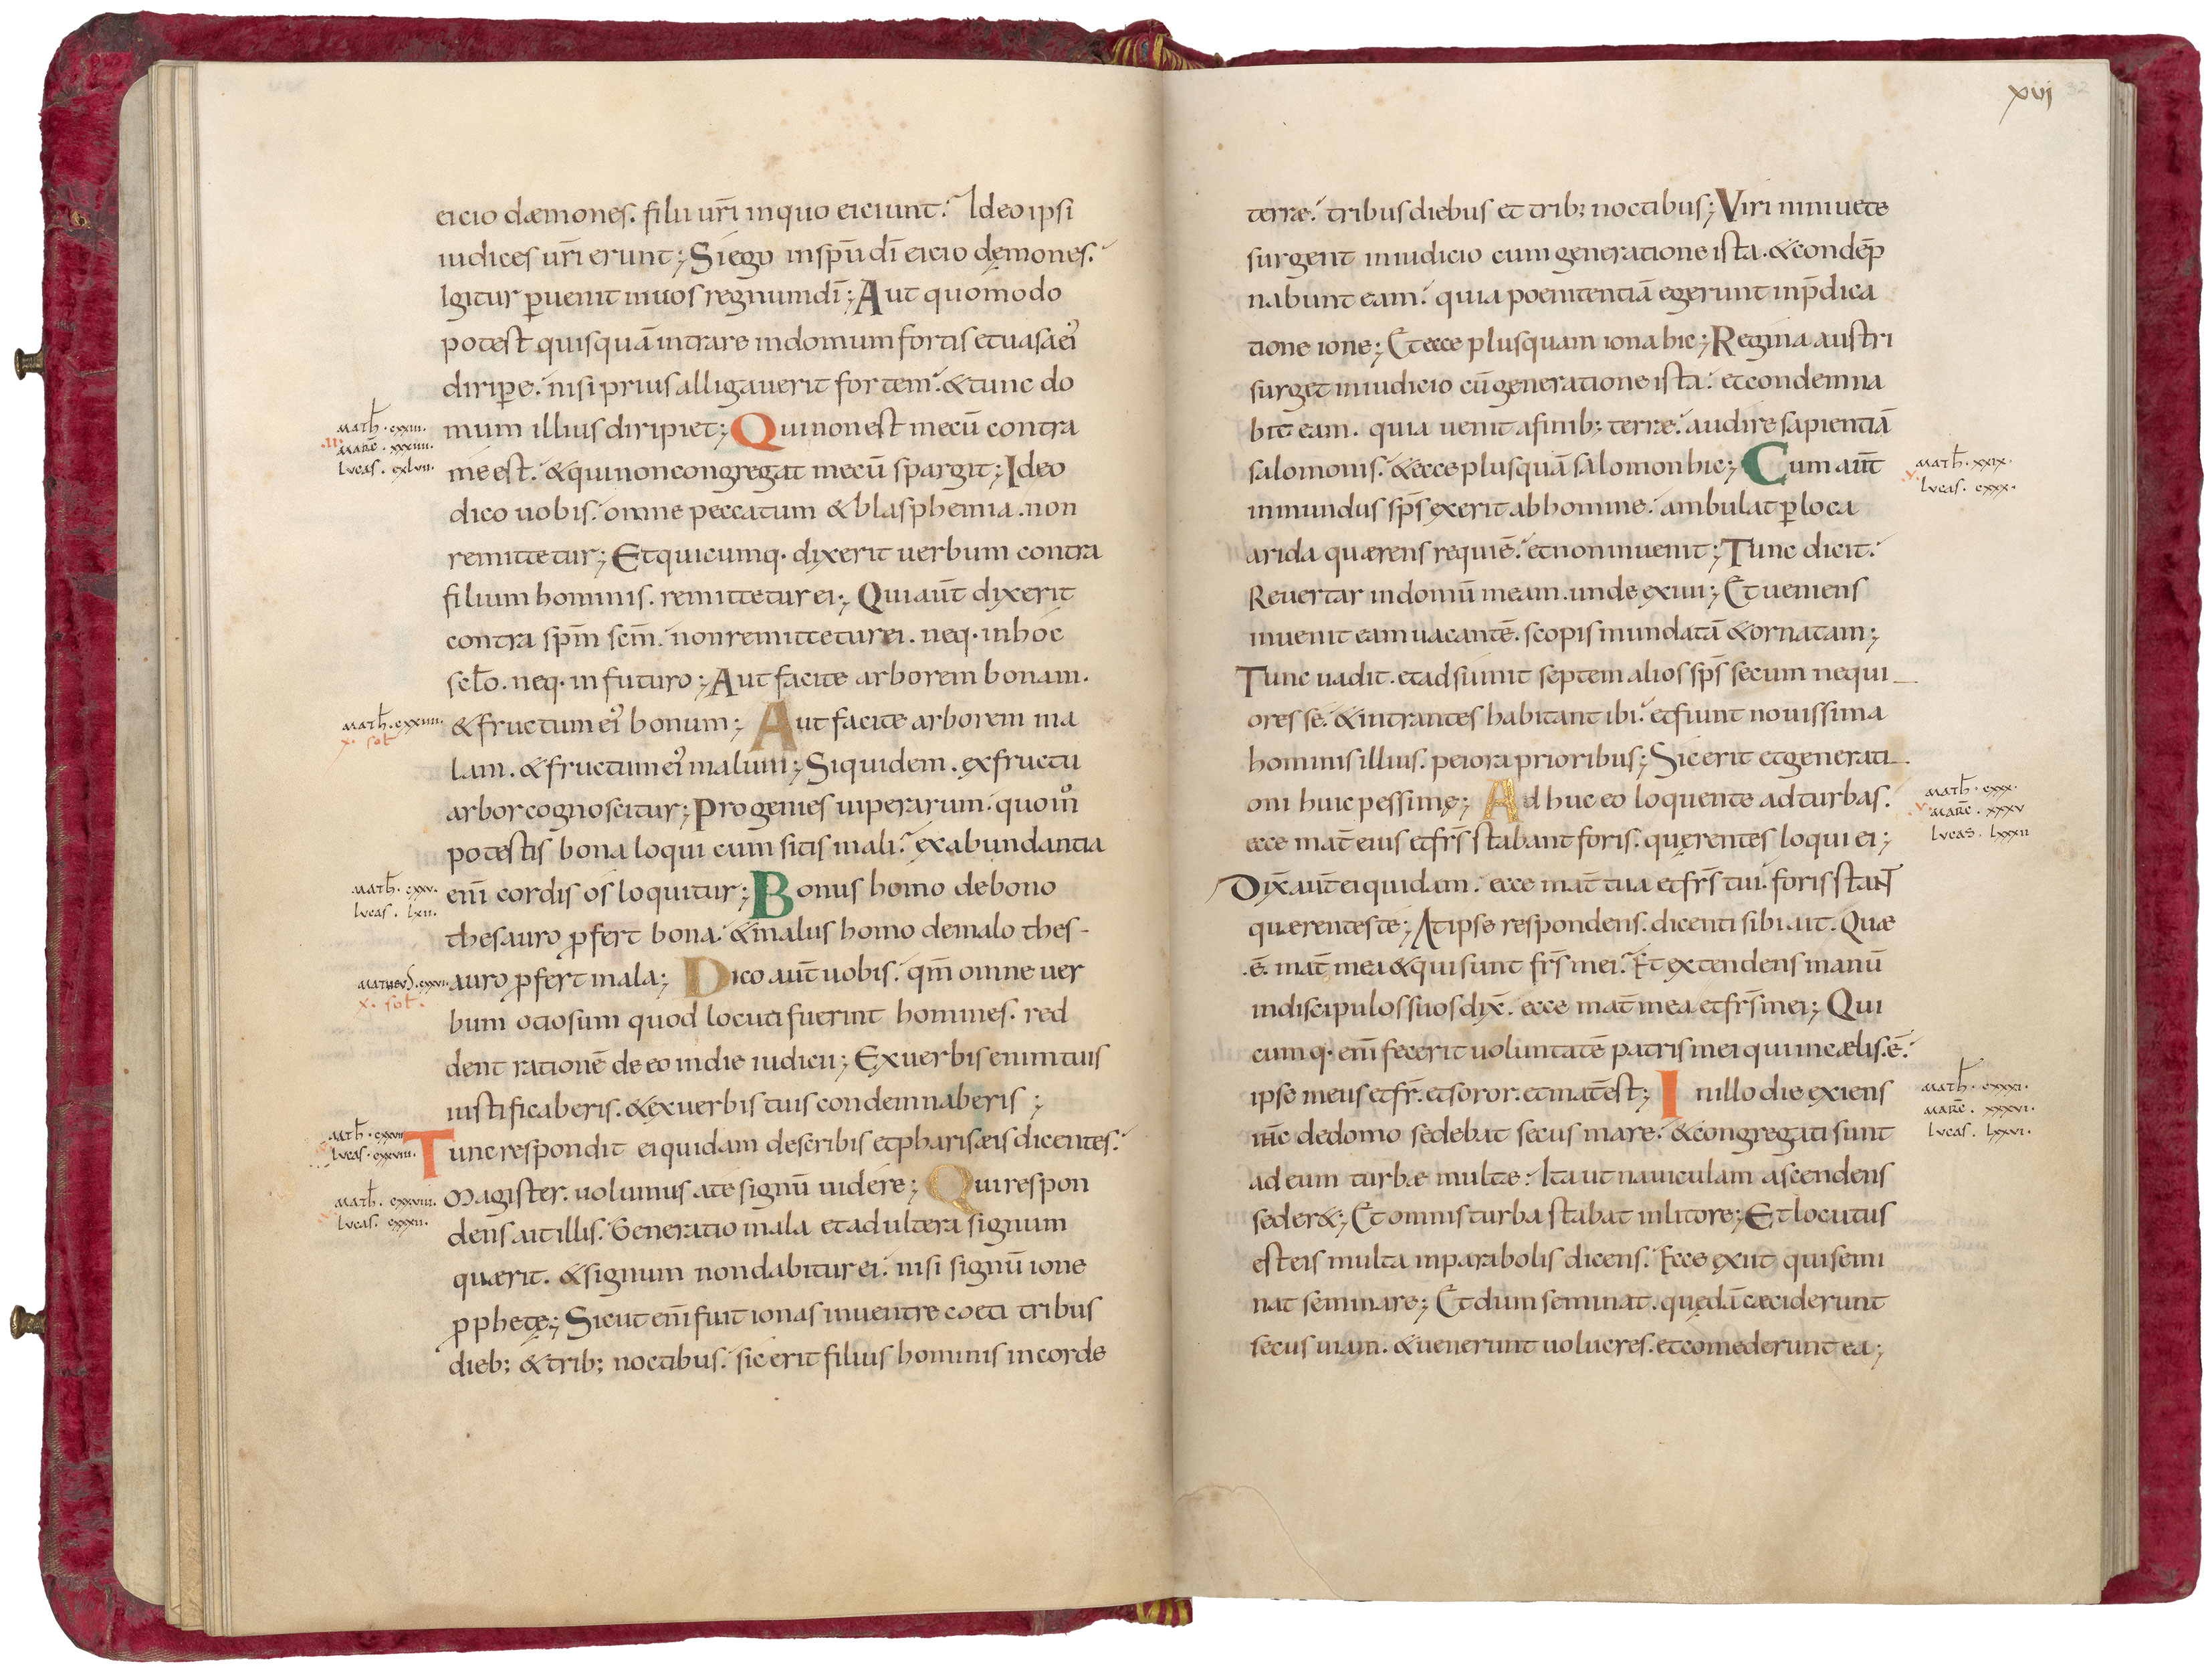 eicio dæmones. filii ur̄i inquo eiciunt: Ideo ipsi
iudices ur̄i erunt; Siego inspūdī eicio dęmones.
Igitur ꝑuenit inuos regnumdī; Aut quomodo
potest quisquā intrare indomum fortis etuasaei᾽
diriꝑe. nisi prius alligauerit fortem. &tunc do
math̄. cxxiii.
ii. marc̄. xxxiiii.
lucas. cxlvii.
mum illius diripiet; Quinonest mecū contra
me est. &quinoncongregat mecū spargit; Ideo
dico uobis. omne peccatum &blasphemia. non
remittetur; Etquicumq· dixerit uerbum contra
filium hominis. remittetur ei; Quiaut̄ dixerit
contra spm̄ scm̄. nonremittetur ei. neq· inhoc
scl̄o. neq· infuturo; Aut facite arborem bonam.
math̄. cxxiiii.
x. sol̄
&fructum ei᾽ bonum; Aut facite arborem ma
lam. &fructum ei᾽ malum; Siquidem. exfructu
arbor cognoscitur; Progenies uiperarum. quom̊
potestis bona loqui cum sitis mali. exabundantia
math̄. cxxv.
lucas. lxii.
eni̅ cordis os loquitur; Bonus homo debono
thesauro ꝓfert bona. &malus homo demalo thes-
matheus. cxxvi.
x. sol̄.
auro ꝓfert mala; Dico aut̄ uobis. qm̄ omne uer
bum otiosum quod locuti fuerint homines. red
dent rationē de eo indie iudicii; Exuerbis enim tuis
iustificaberis. &exuerbis tuis condemnaberis;
math̄. cxxvii
lucas. cxxviii.
Tunc respondit ei quidam describis etpharisæis dicentes.
Magister. uolumus ate signū uidere; Qui respon
math̄. cxxviii.
lucas. cxxxii.
dens ait illis. Generatio mala etadultera signum
quærit. &signum nondabitur ei. nisi signū ione
ꝓphetę; Sicut eni̅ fuit ionas inuentre coeti tribus
dieb; &trib; noctibus. sic erit filius hominis incorde
xvij 32
terræ. tribus diebus et trib; noctibus; Viri niniuete
surgent iniudicio cum generatione ista. &condēp
nabunt eam. quia poenitentiā egerunt inp̄dica
tione ione; Et ecce plusquam iona hic; Regina austri
surget iniudicio cū generatione ista. etcondemna
bit eam. quia uenit afinib; terræ. audire sapientiā
salomonis. &ecce plusquā salomon hic; Cum aut̄
math̄. xxix.
v. lucas. cxxx.
inmundus sp̄s exerit abhomine. ambulat ꝑ loca
arida quærens requiē. etnoninuenit; Tunc dicit.
Reuertar indomū meam. unde exiui; Et ueniens
inuenit eam uacantē. scopis mundatā &ornatam;
Tunc uadit. etadsumit septem alios sp̄s secum nequi_
ores se. &intrantes habitant ibi. etfiunt nouissima
hominis illius. peiora prioribus; Sic erit etgenerati_
oni huic pessimę; Adhuc eo loquente adturbas.
math̄. cxxx.
v. marc̄. xxxv
lucas. lxxxii
ecce mat̄ eius etfr̄s stabant foris. quęrentes loqui ei;
Dix̄ aut̄ ei quidam. ecce mat̄ tua etfr̄s tui. foris stant
quærentes te; At ipse respondens. dicenti sibi ait. Quæ
.ē. mat̄ mea &qui sunt fr̄s mei. Et extendens manū
indiscipulos suos dix̄. ecce mat̄ mea etfr̄s mei; Qui
cumq· eni̅ fecerit uoluntatē patris mei qui incælis.ē.
ipse meus etfr̄. etsoror. etmat̄ est; Inillo die exiens
math̄. cxxxi.
marc̄. xxxvi.
lucas. lxxvi.
ihc̄ dedomo sedebat secus mare. &congregati sunt
ad eum turbæ multæ: Ita ut nauiculam ascendens
seder&; Et omnis turba stabat inlitore; Et locutus
est eis multa inparabolis dicens. Ecce exiit qui semi
nat seminare; Et dum seminat. quędā cæciderunt
secus uiam. &uenerunt uolucres. etcomederunt ea;